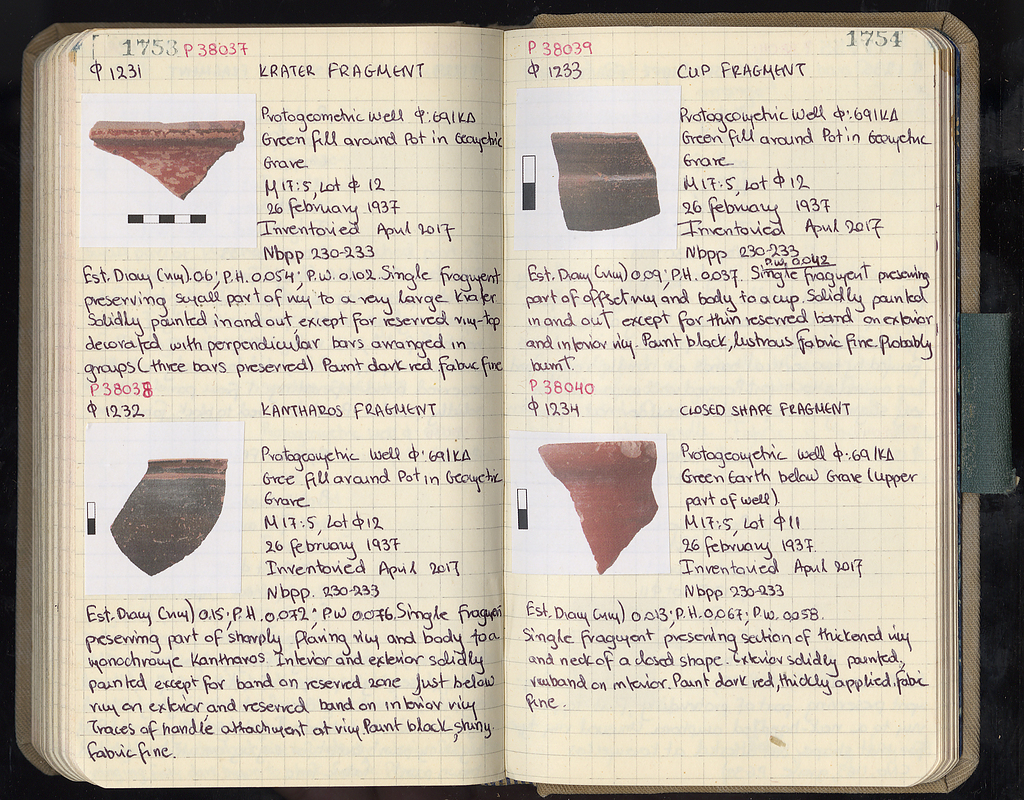 1753 P 38037
Φ 1231 KRATER FRAGMENT
Protogeometric Well Φ:691ΚΔ
Green fill around Pot in Geometric
Grave
M 17:5, Lot Φ 12
26 february 1937
Inventoried April 2017
Nbpp 230-233
Est. Diam (rim) 0.6; P.H. 0.054; P.W. 0.102. Single fragment
preserving small part of rim to a very large krater.
Solidly painted in and out, except for reserved rim-top
decorated with perpendicular bars arranged in
groups (three bars preserved) Paint dark red fabric fine
P 38038
Φ 1232 KANTHAROS FRAGMENT
Protogeometric Well Φ:691ΚΔ
Gree fill around Pot in Geometric
Grave
M 17:5, Lot Φ 12
26 february 1937
Inventoried April 2017
Nbpp. 230-233
Est. Diam (rim) 0.15; P.H. 0.072; P.W 0.076. Single fragment
preserving part of sharply flaring rim and body to a
monochrome kantharos. Interior and exterior solidly
painted except for band on reserved zone just below
rim on exterior and reserved band on interior rim
Traces of handle attachment at rim. Paint black, shiny.
Fabric fine.
1754
P 38039
Φ 1233 CUP FRAGMENT
Protogeometric Well Φ:691ΚΔ
Green fill around Pot in Geometric
Grave
M 17:5, Lot Φ 12
26 february 1937
Inventoried April 2017
Nbpp 230-233
P.W. 0.042
Est. Diam (rim) 0.09; P.H. 0.037. Single fragment preserving
part of offset rim and body to a cup. Solidly painted
in and out except for thin reserved band on exterior
and interior rim. Paint black, lustrous fabric fine. Probably
burnt.
P 38040
Φ 1234 CLOSED SHAPE FRAGMENT
Protogeometric Well Φ:691ΚΔ
Green Earth below Grave (upper
part of well)
M 17:5, Lot Φ 11
26 february 1937.
Inventoried April 2017
Nbpp 230-233
Est. Diam (rim) 0.013; P.H. 0.067; P.W. 0.058.
Single fragment preserving section of thickened rim
and neck of a closed shape. Exterior solidly painted,
rimband on interior. Paint dark red, thickly applied. fabric
fine.